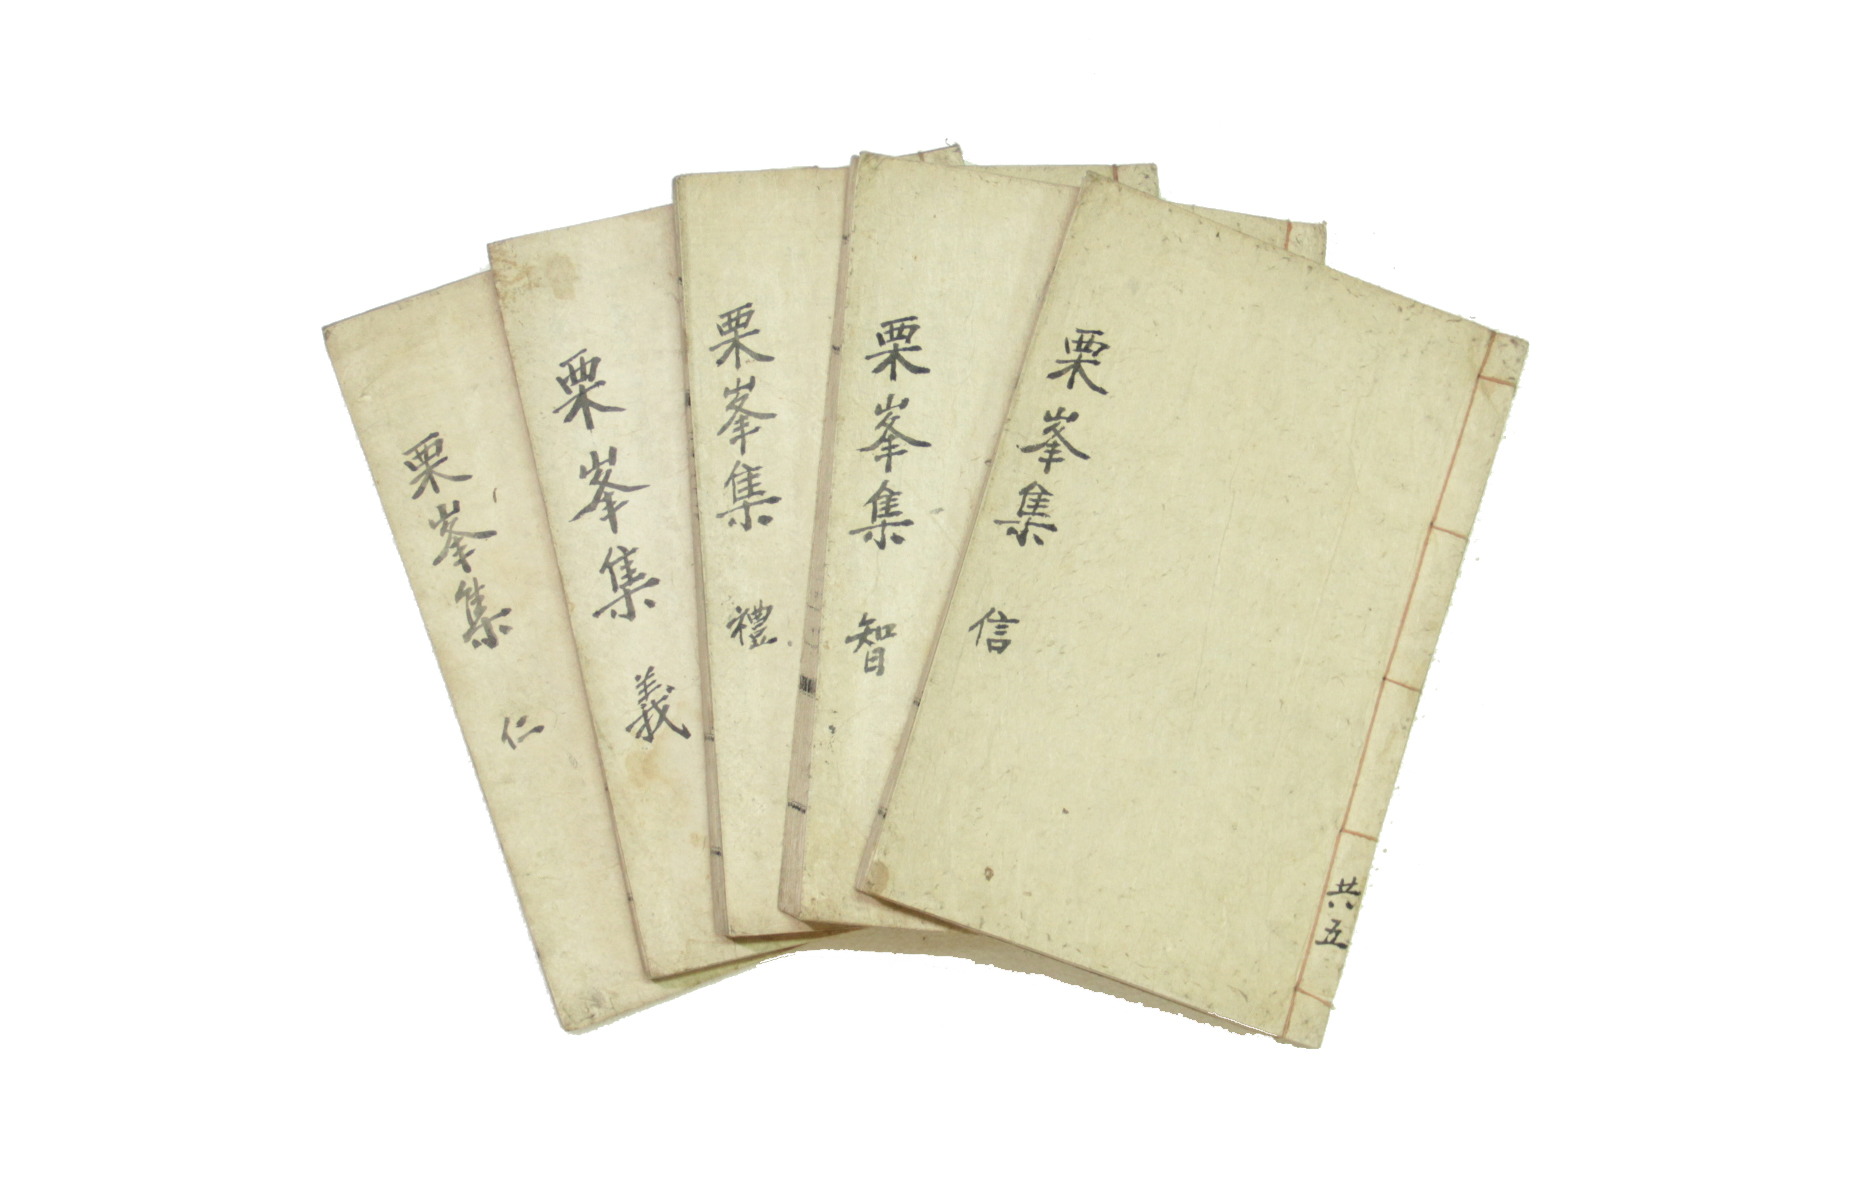 栗峯集 仁
栗峯集 義
栗峯集 禮
栗峯集 智
栗峯集 信
共五